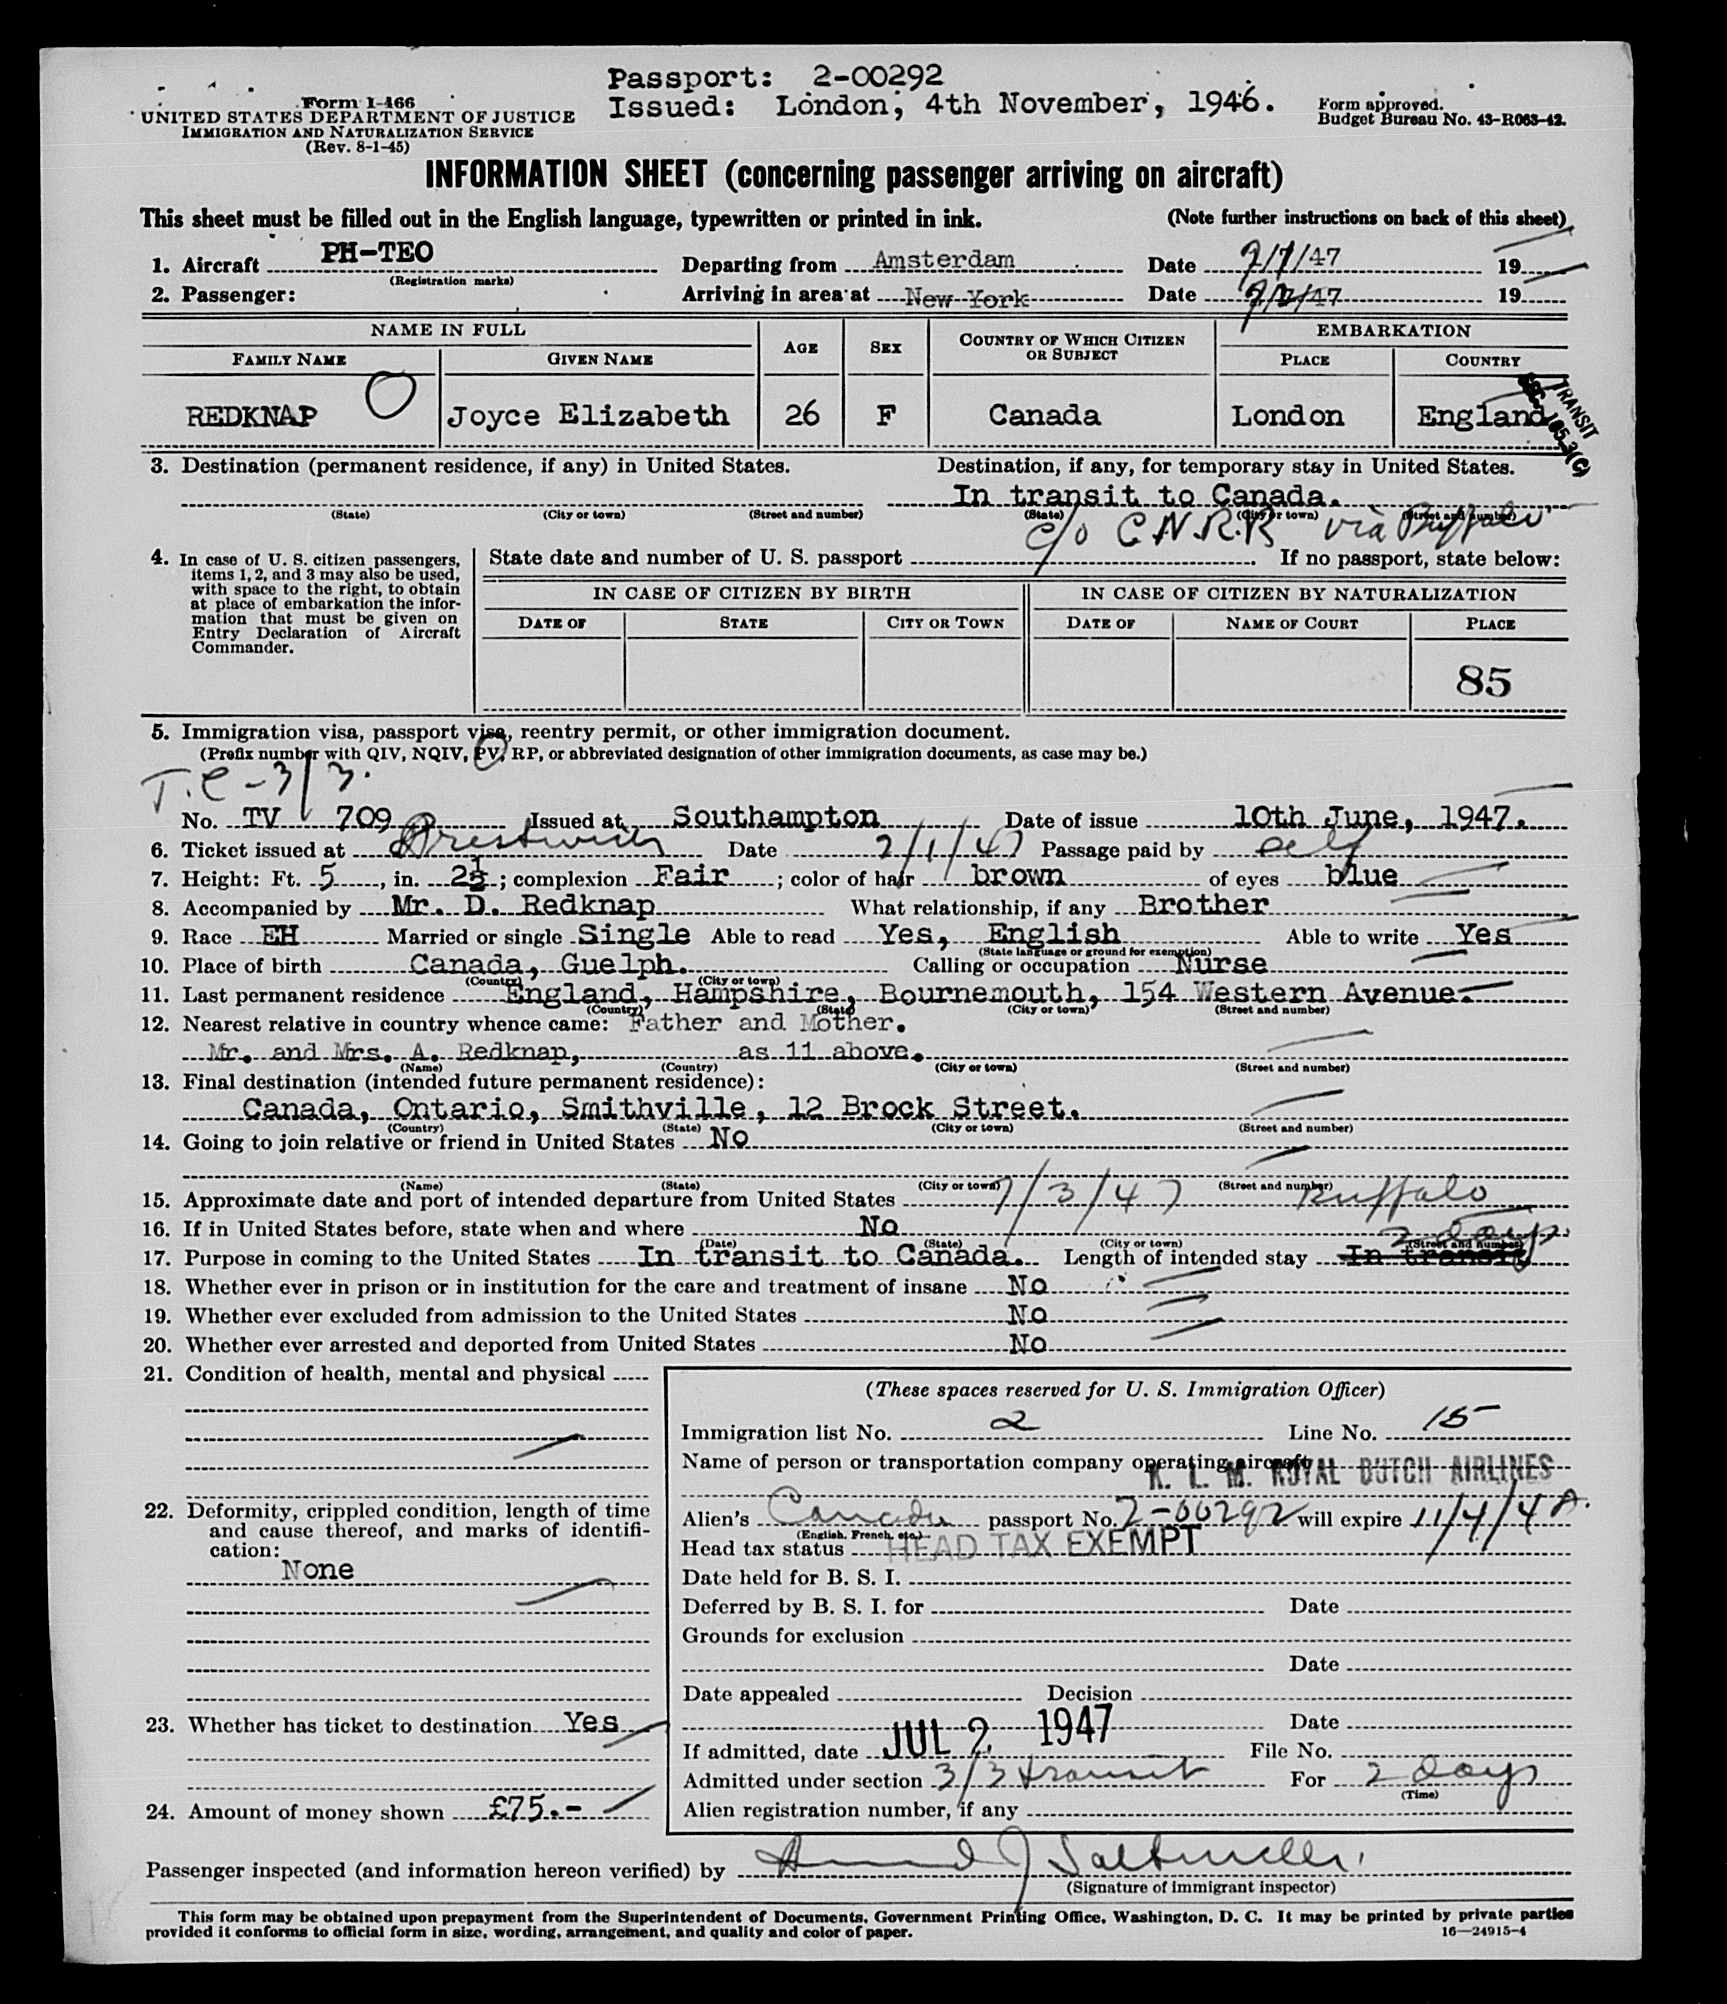 Passport: 2-00292
Form I-466
UNITED STATES DEPARTMENT OF JUSTICE
Issued: London, 4th November, 1946.
Form approved.
IMMIGRATION AND NATURALIZATION SERVICE
Budget Bureau No. 43-R063-42.
(Rev. 8-1-45)
INFORMATION SHEET (concerning passenger arriving on aircraft)
This sheet must be filled out in the English language, typewritten or printed in ink. (Note further instructions on back of this sheet)
1. Aircraft PH-TEO Departing from Amsterdam Date 7/1/47 19
(Registration marks)
2. Passenger: Arriving in area at New York Date 7/2/47 19
NAME IN FULL AGE SEX COUNTRY OF WHICH CITIZEN OR SUBJECT EMBARKATION
FAMILY NAME GIVEN NAME PLACE COUNTRY
REDKNAP Joyce Elizabeth 26 F Canada London England
TRANSIT
3. Destination (permanent residence, if any) in United States. Destination, if any, for temporary stay in United States.
In transit to Canada.
(State) (City or town) (Street and number) (State) (City or town) (Street and number)
c/o C.N.R.R via Buffalo
4. In case of U. S. citizen passengers, items 1, 2, and 3 may also be used, with space to the right, to obtain at place of embarkation the information that must be given on Entry Declaration of Aircraft Commander.
State date and number of U. S. passport If no passport, state below:
IN CASE OF CITIZEN BY BIRTH IN CASE OF CITIZEN BY NATURALIZATION
DATE OF STATE CITY OR TOWN DATE OF NAME OF COURT PLACE
85
5. Immigration visa, passport visa, reentry permit, or other immigration document.
(Prefix number with QIV, NQIV, PV, RP, or abbreviated designation of other immigration documents, as case may be.)
T.C - 3/3.
No. TV 709 Issued at Southampton Date of issue 10th June, 1947.
6. Ticket issued at Prestwick Date 7/1/47 Passage paid by self
7. Height: Ft. 5, in. 2½; complexion Fair; color of hair brown of eyes blue
8. Accompanied by Mr. D. Redknap What relationship, if any Brother
9. Race EH Married or single Single Able to read Yes, English Able to write Yes
(State language or ground for exemption)
10. Place of birth Canada, Guelph. Calling or occupation Nurse
(Country) (City or town)
11. Last permanent residence England, Hampshire, Bournemouth, 154 Western Avenue.
(Country) (State) (City or town) (Street and number)
12. Nearest relative in country whence came: Father and Mother.
Mr. and Mrs. A. Redknap, as 11 above.
(Name) (Country) (City or town) (Street and number)
13. Final destination (intended future permanent residence):
Canada, Ontario, Smithville, 12 Brock Street.
(Country) (State) (City or town) (Street and number)
14. Going to join relative or friend in United States No
(Name) (State) (City or town) (Street and number)
15. Approximate date and port of intended departure from United States 7/3/47 Buffalo
16. If in United States before, state when and where No
(Date) (State) (City or town) (Street and number)
2 days
17. Purpose in coming to the United States In transit to Canada. Length of intended stay In transit
18. Whether ever in prison or in institution for the care and treatment of insane No
19. Whether ever excluded from admission to the United States No
20. Whether ever arrested and deported from United States No
21. Condition of health, mental and physical
22. Deformity, crippled condition, length of time
and cause thereof, and marks of identifi-
cation:
None
23. Whether has ticket to destination Yes
24. Amount of money shown £75.-
(These spaces reserved for U. S. Immigration Officer)
Immigration list No. 2 Line No. 15
Name of person or transportation company operating aircraft
K. L. M. ROYAL DUTCH AIRLINES
Alien's Canada passport No. 2-00292 will expire 11/4/48.
(English, French, etc.)
Head tax status HEAD TAX EXEMPT
Date held for B. S. I.
Deferred by B. S. I. for Date
Grounds for exclusion
Date
Date appealed Decision
Date
If admitted, date JUL 2 1947 File No.
Admitted under section 3/3 transit For 2 days
(Time)
Alien registration number, if any
Passenger inspected (and information hereon verified) by
(Signature of immigrant inspector)
This form may be obtained upon prepayment from the Superintendent of Documents, Government Printing Office, Washington, D. C. It may be printed by private parties
provided it conforms to official form in size, wording, arrangement, and quality and color of paper.
16—24915-4